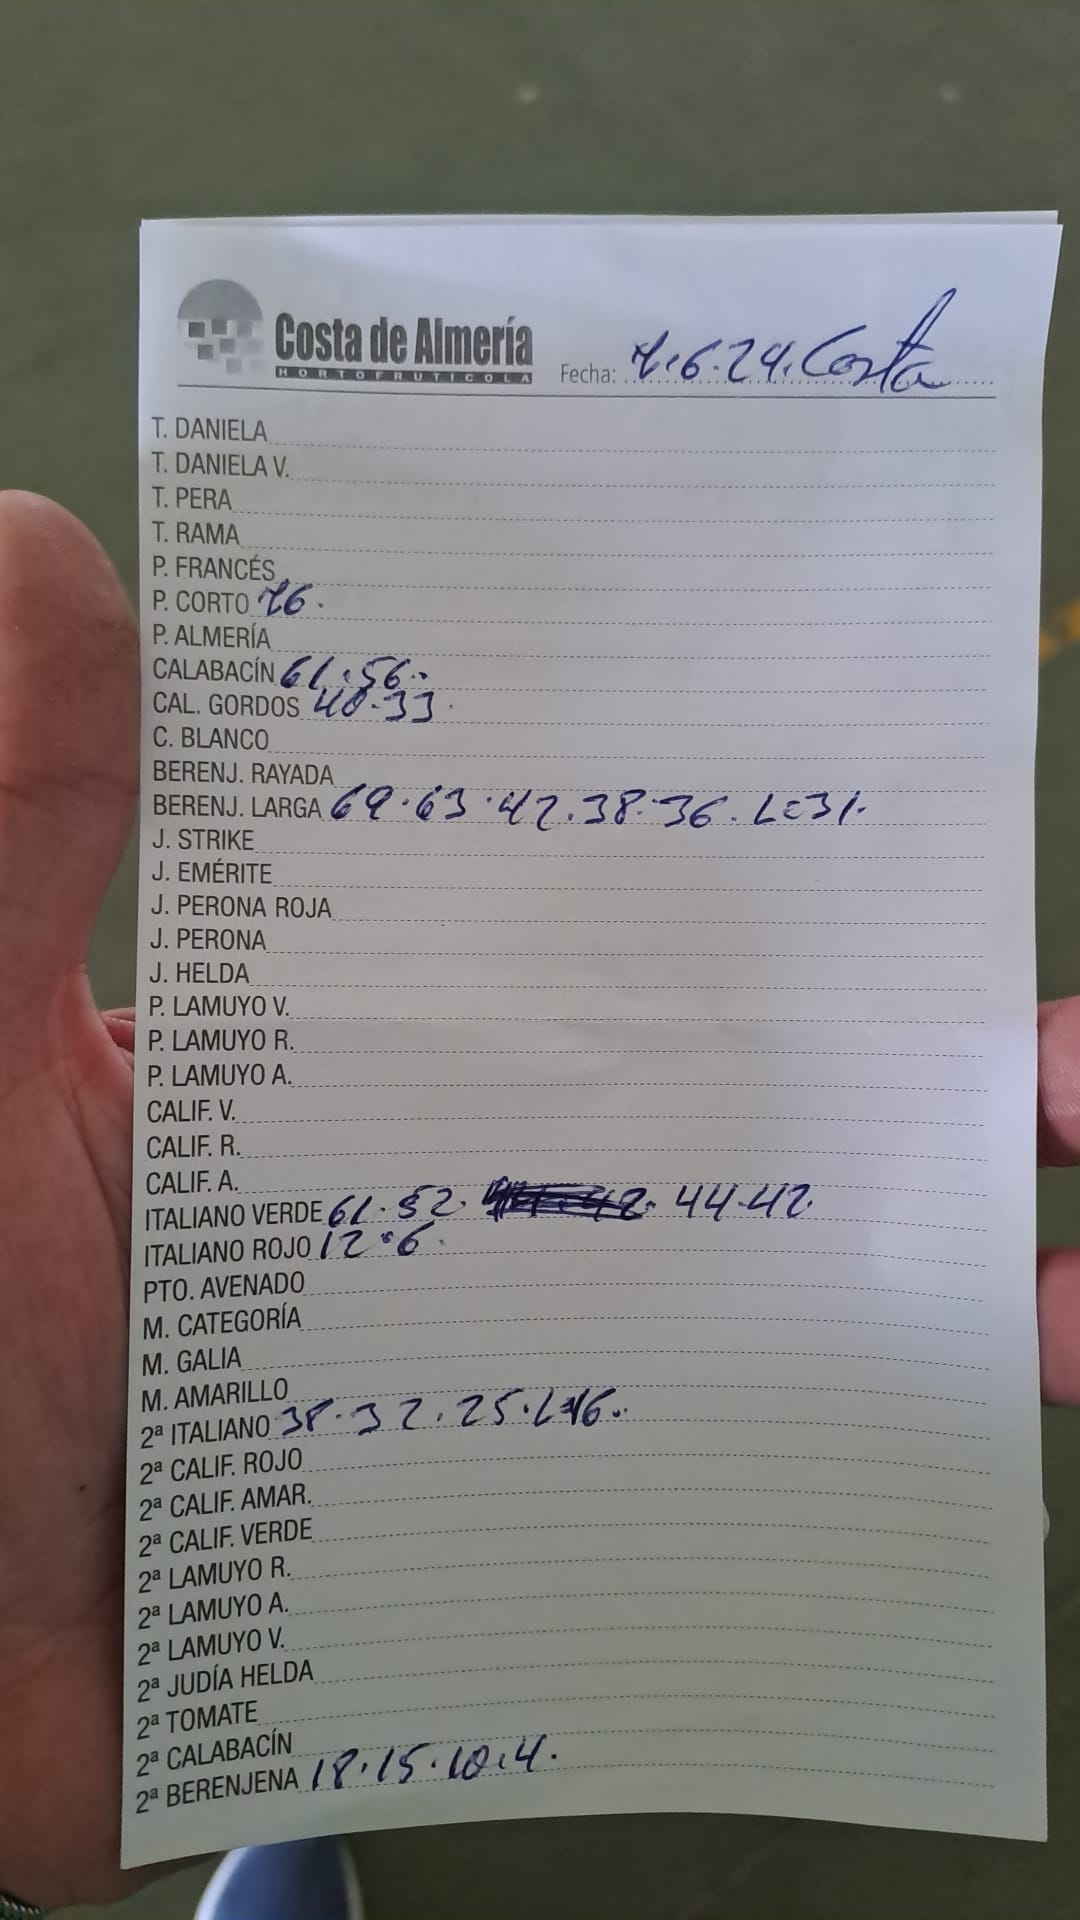 Costa de Almería
HORTOFRUTICOLA
Fecha: 7.6.24. Costa
T. DANIELA
T. DANIELA V.
T. PERA
T. RAMA
P. FRANCÉS
P. CORTO 76.
P. ALMERÍA
CALABACÍN 61.56.
CAL. GORDOS 40.33
C. BLANCO
BERENJ. RAYADA
BERENJ. LARGA 69.63.42.38.36. L=31.
J. STRIKE
J. EMÉRITE
J. PERONA ROJA
J. PERONA
J. HELDA
P. LAMUYO V.
P. LAMUYO R.
P. LAMUYO A.
CALIF. V.
CALIF. R.
CALIF. A.
ITALIANO VERDE 61.52. 44.42.
ITALIANO ROJO 12.6.
PTO. AVENADO
M. CATEGORÍA
M. GALIA
M. AMARILLO
2ª ITALIANO 38.32.25.L=16.
2ª CALIF. ROJO
2ª CALIF. AMAR.
2ª CALIF. VERDE
2ª LAMUYO R.
2ª LAMUYO A.
2ª LAMUYO V.
2ª JUDÍA HELDA
2ª TOMATE
2ª CALABACÍN
2ª BERENJENA 18.15.10.4.